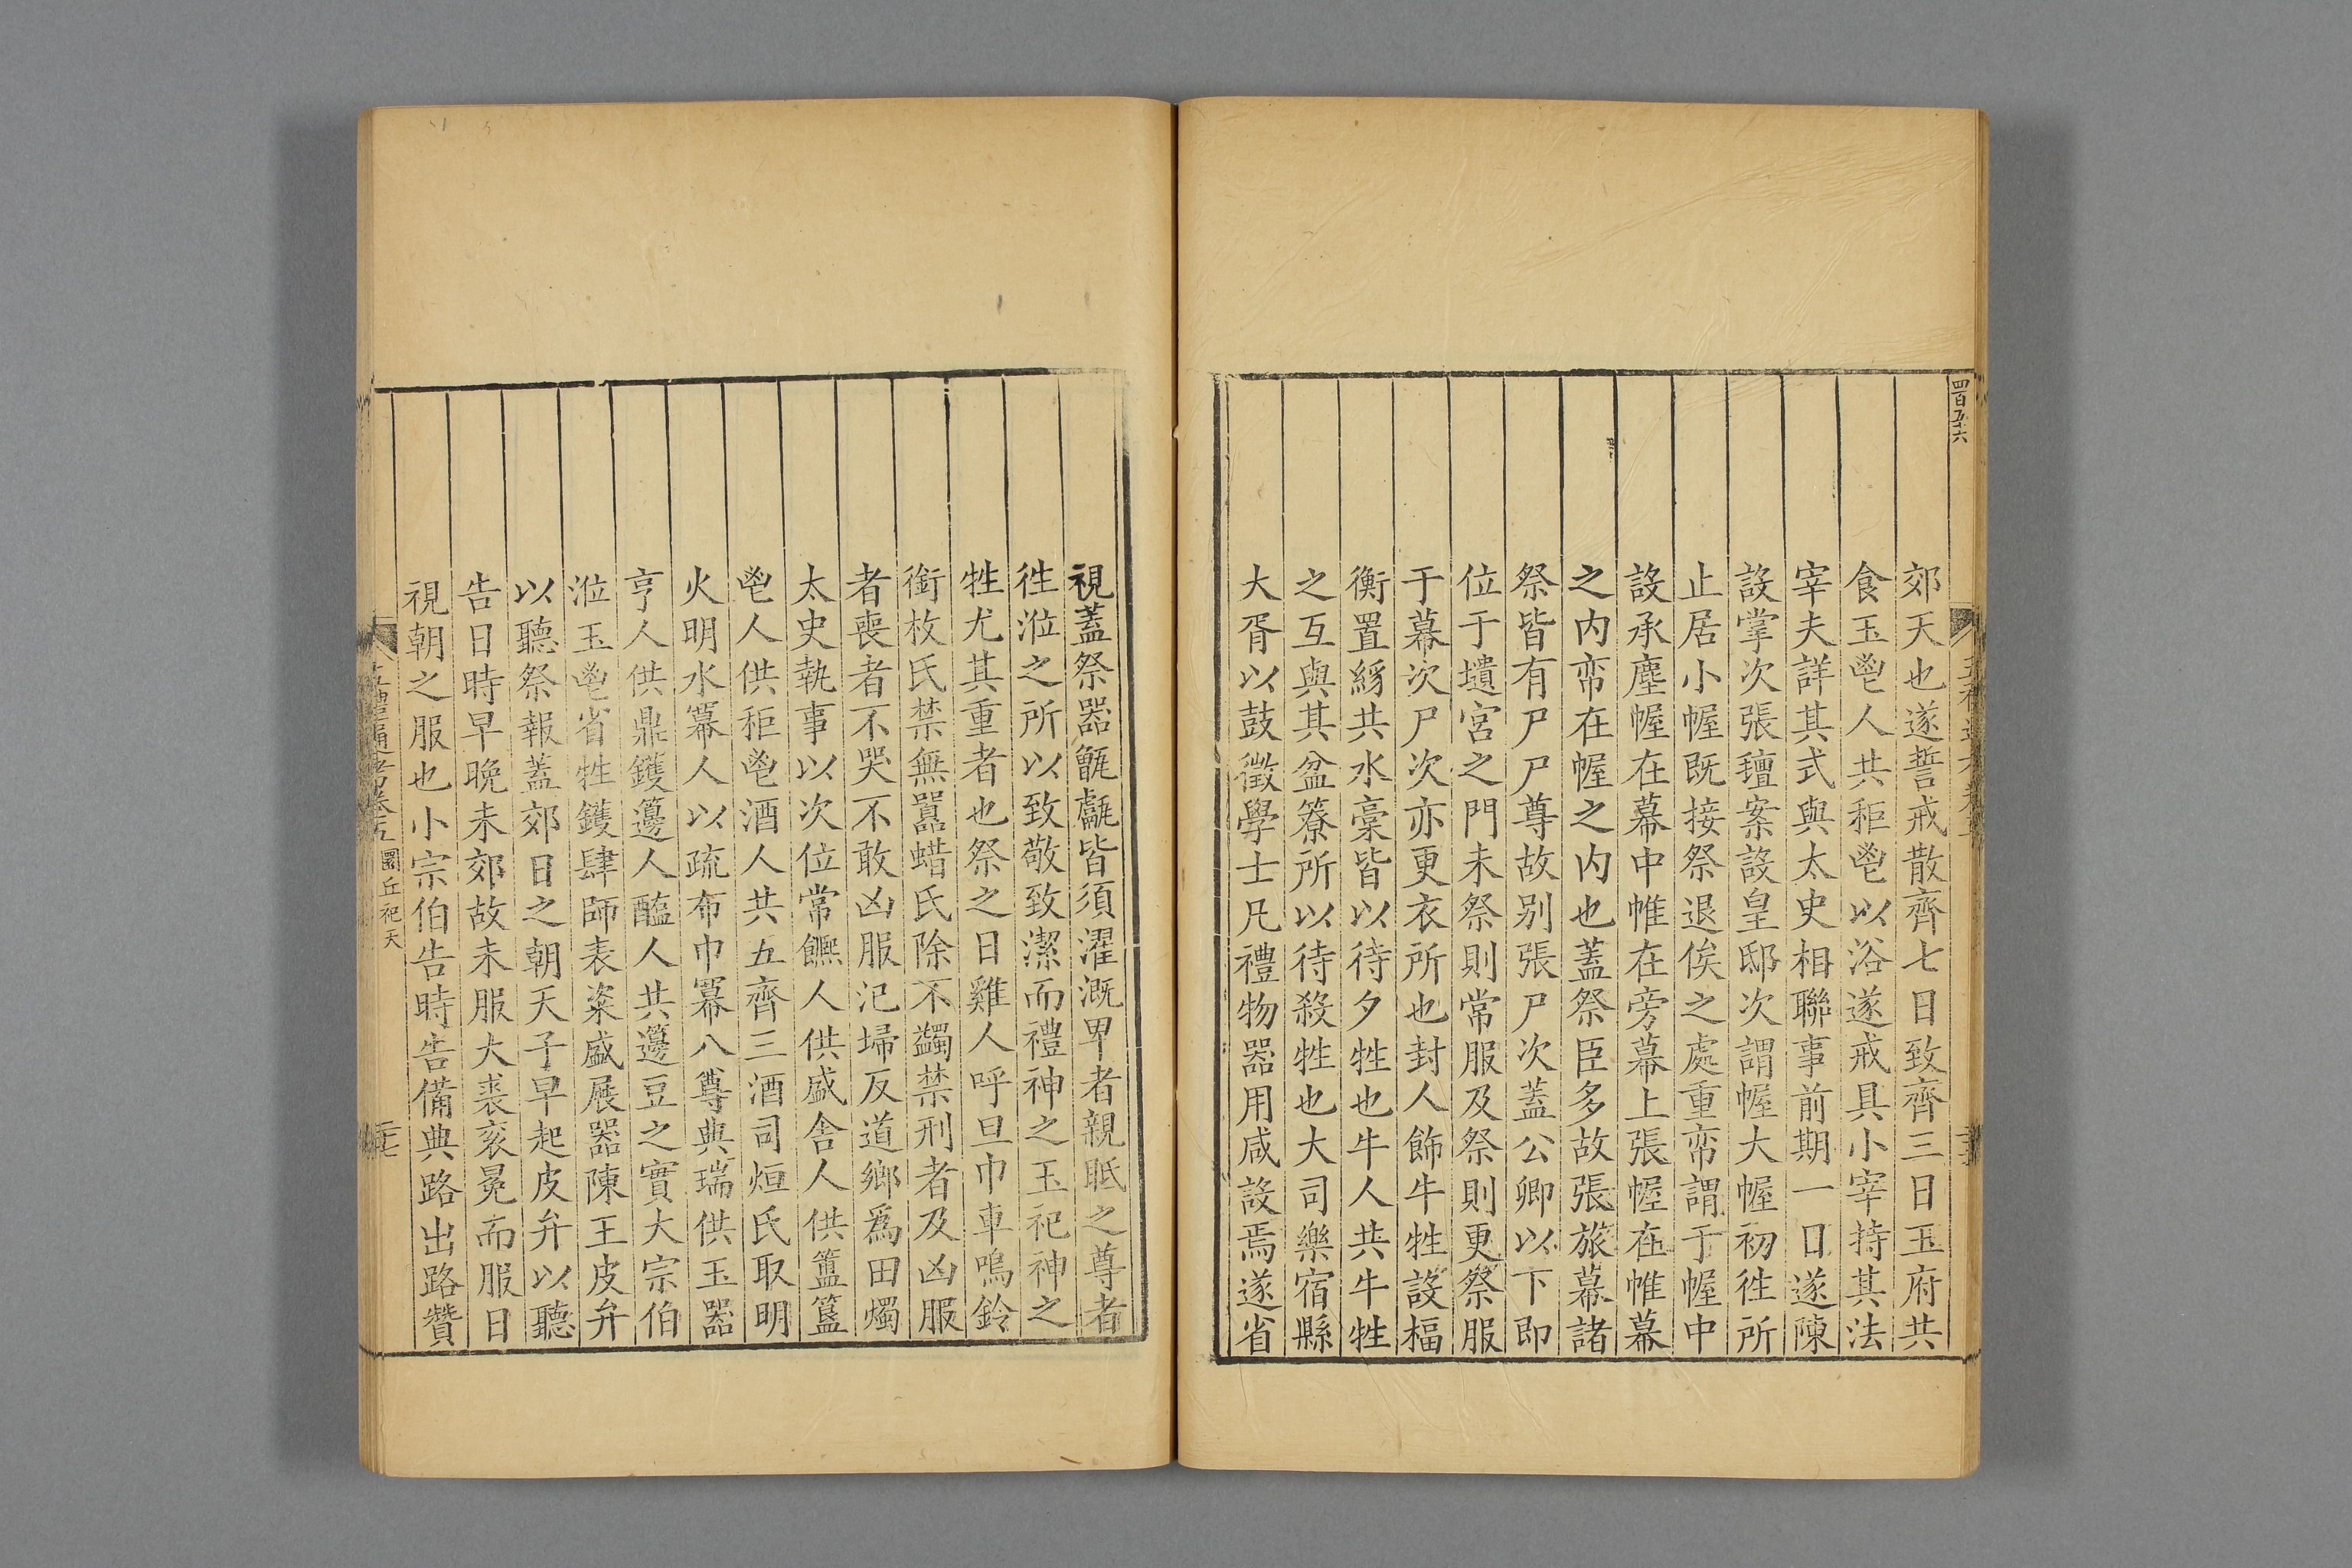 四百五十六
郊天也遂誓戒散齊七日致齊三日玉府共
食玉鬯人共秬鬯以浴遂戒具小宰持其法
宰夫詳其式與太史相聯事前期一日遂陳
設掌次張氊案設皇邸次謂幄大幄初徃所
止居小幄既接祭退俟之處重帟謂于幄中
設承塵幄在幕中帷在旁幕上張幄在帷幕
之内帟在幄之内也蓋祭臣多故張旅幕諸
祭皆有尸尸尊故别張尸次蓋公卿以下即
位于壝宮之門未祭則常服及祭則更祭服
于幕次尸次亦更衣所也封人飾牛牲設楅
衡置絼共水稾皆以待夕牲也牛人共牛牲
之互與其盆簝所以待殺牲也大司樂宿縣
大胥以鼓徵學士凡禮物器用咸設焉遂省
視蓋祭器甑甗皆須濯溉卑者親眡之尊者
徃涖之所以致敬致潔而禮神之玉祀神之
牲尤其重者也祭之日雞人呼旦巾車鳴鈴
銜枚氏禁無囂蜡氏除不蠲禁刑者及凶服
者喪者不哭不敢凶服汜埽反道鄉爲田燭
太史執事以次位常饎人供盛舍人供簠簋
鬯人供秬鬯酒人共五齊三酒司烜氏取明
火明水冪人以疏布巾冪八尊典瑞供玉器
亨人供鼎鑊籩人醢人共籩豆之實大宗伯
涖玉鬯省牲鑊肆師表粢盛展器陳王皮弁
以聽祭報蓋郊日之朝天子早起皮弁以聽
告日時早晚未郊故未服大裘衮冕而服日
視朝之服也小宗伯告時告備典路出路贊
五禮通考卷五 圜丘祀天